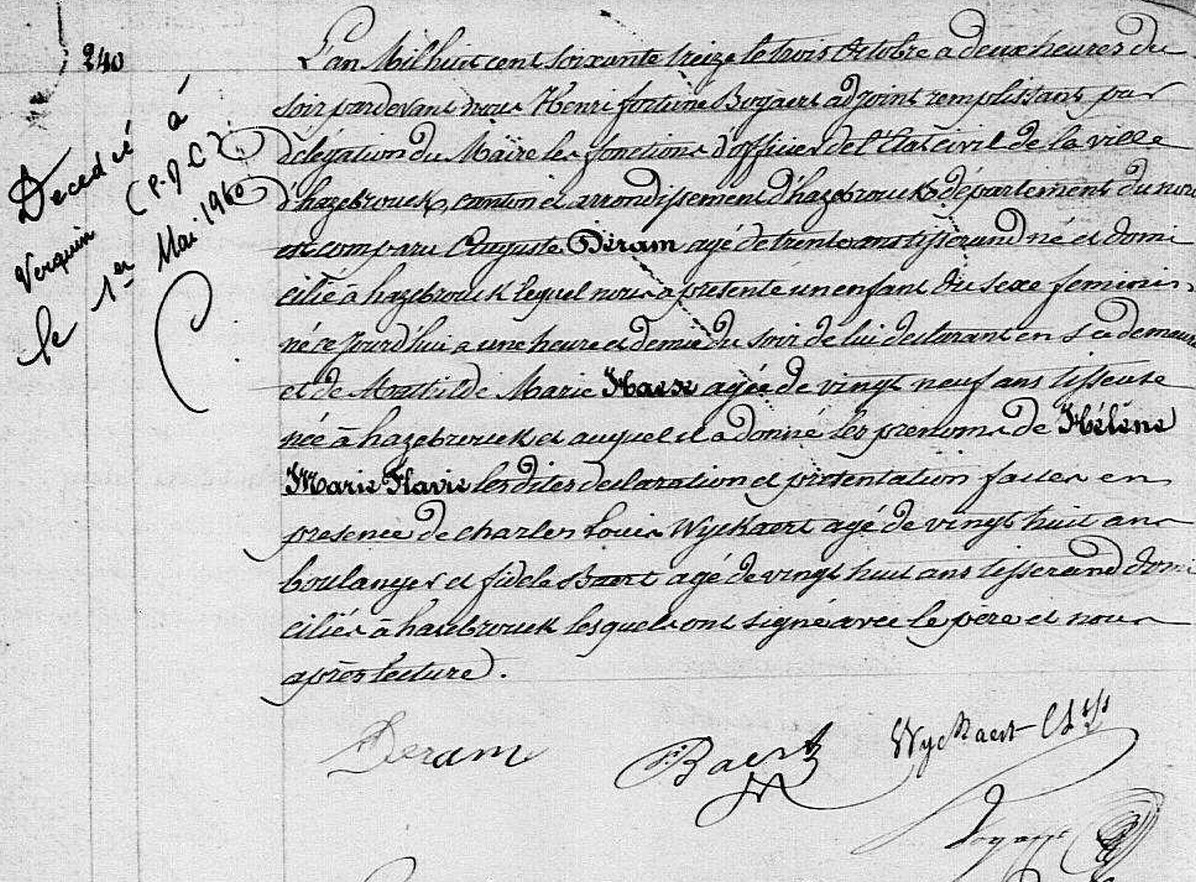 240
Decedé à
Verquin (P.d.C).
le 1er Mai 1960
L'an Mil huit cent soixante treize le trois Octobre a deux heures du
soir pardevant nous Henri fortuné Bogaert adjoint remplissant par
délégation du Maire les fonctions d'officier de l'État civil de la ville
d'hazebrouck, canton et arrondissement d'hazebrouck département du nord
est comparu Auguste Deram agé de trente ans tisserand né et domi
cilié à hazebrouck lequel nous a présenté un enfant du sexe feminin
né ce jourd'hui a une heure et demie du soir de lui declarant en sa demeure
et de Mathilde Marie agée de vingt neuf ans tisseuse
née à hazebrouck et auquel il a donné les prenoms de Hélène
Marie Flavie les dites declaration et présentation faites en
presence de charles louis Wyckaert agé de vingt huit ans
boulanger et fidele Baert agé de vingt huit ans tisserand domi
ciliés à hazebrouck lesquels ont signé avec le père et nous
après lecture.
Deram
Baert
Wyckaert Chls
Bogaert